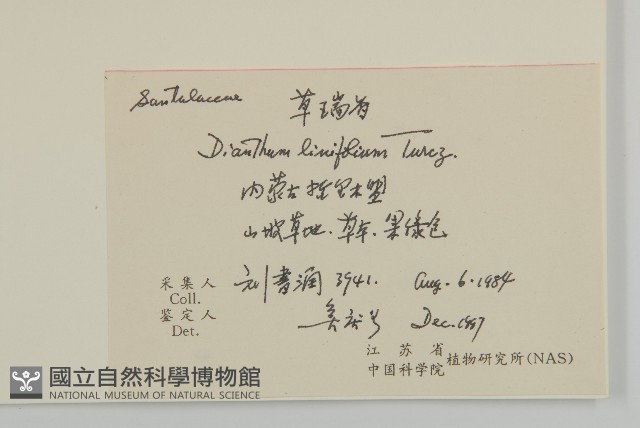 Santalaceae 草瑞香
Dianthum linifolium Turcz.
内蒙古 哲里木盟
山坡草地. 草本. 果绿色
采集人 Coll. 刘书润 3941. Aug. 6. 1984
鉴定人 Det. Dec. 1997
江苏省
中国科学院 植物研究所(NAS)
國立自然科學博物館
NATIONAL MUSEUM OF NATURAL SCIENCE